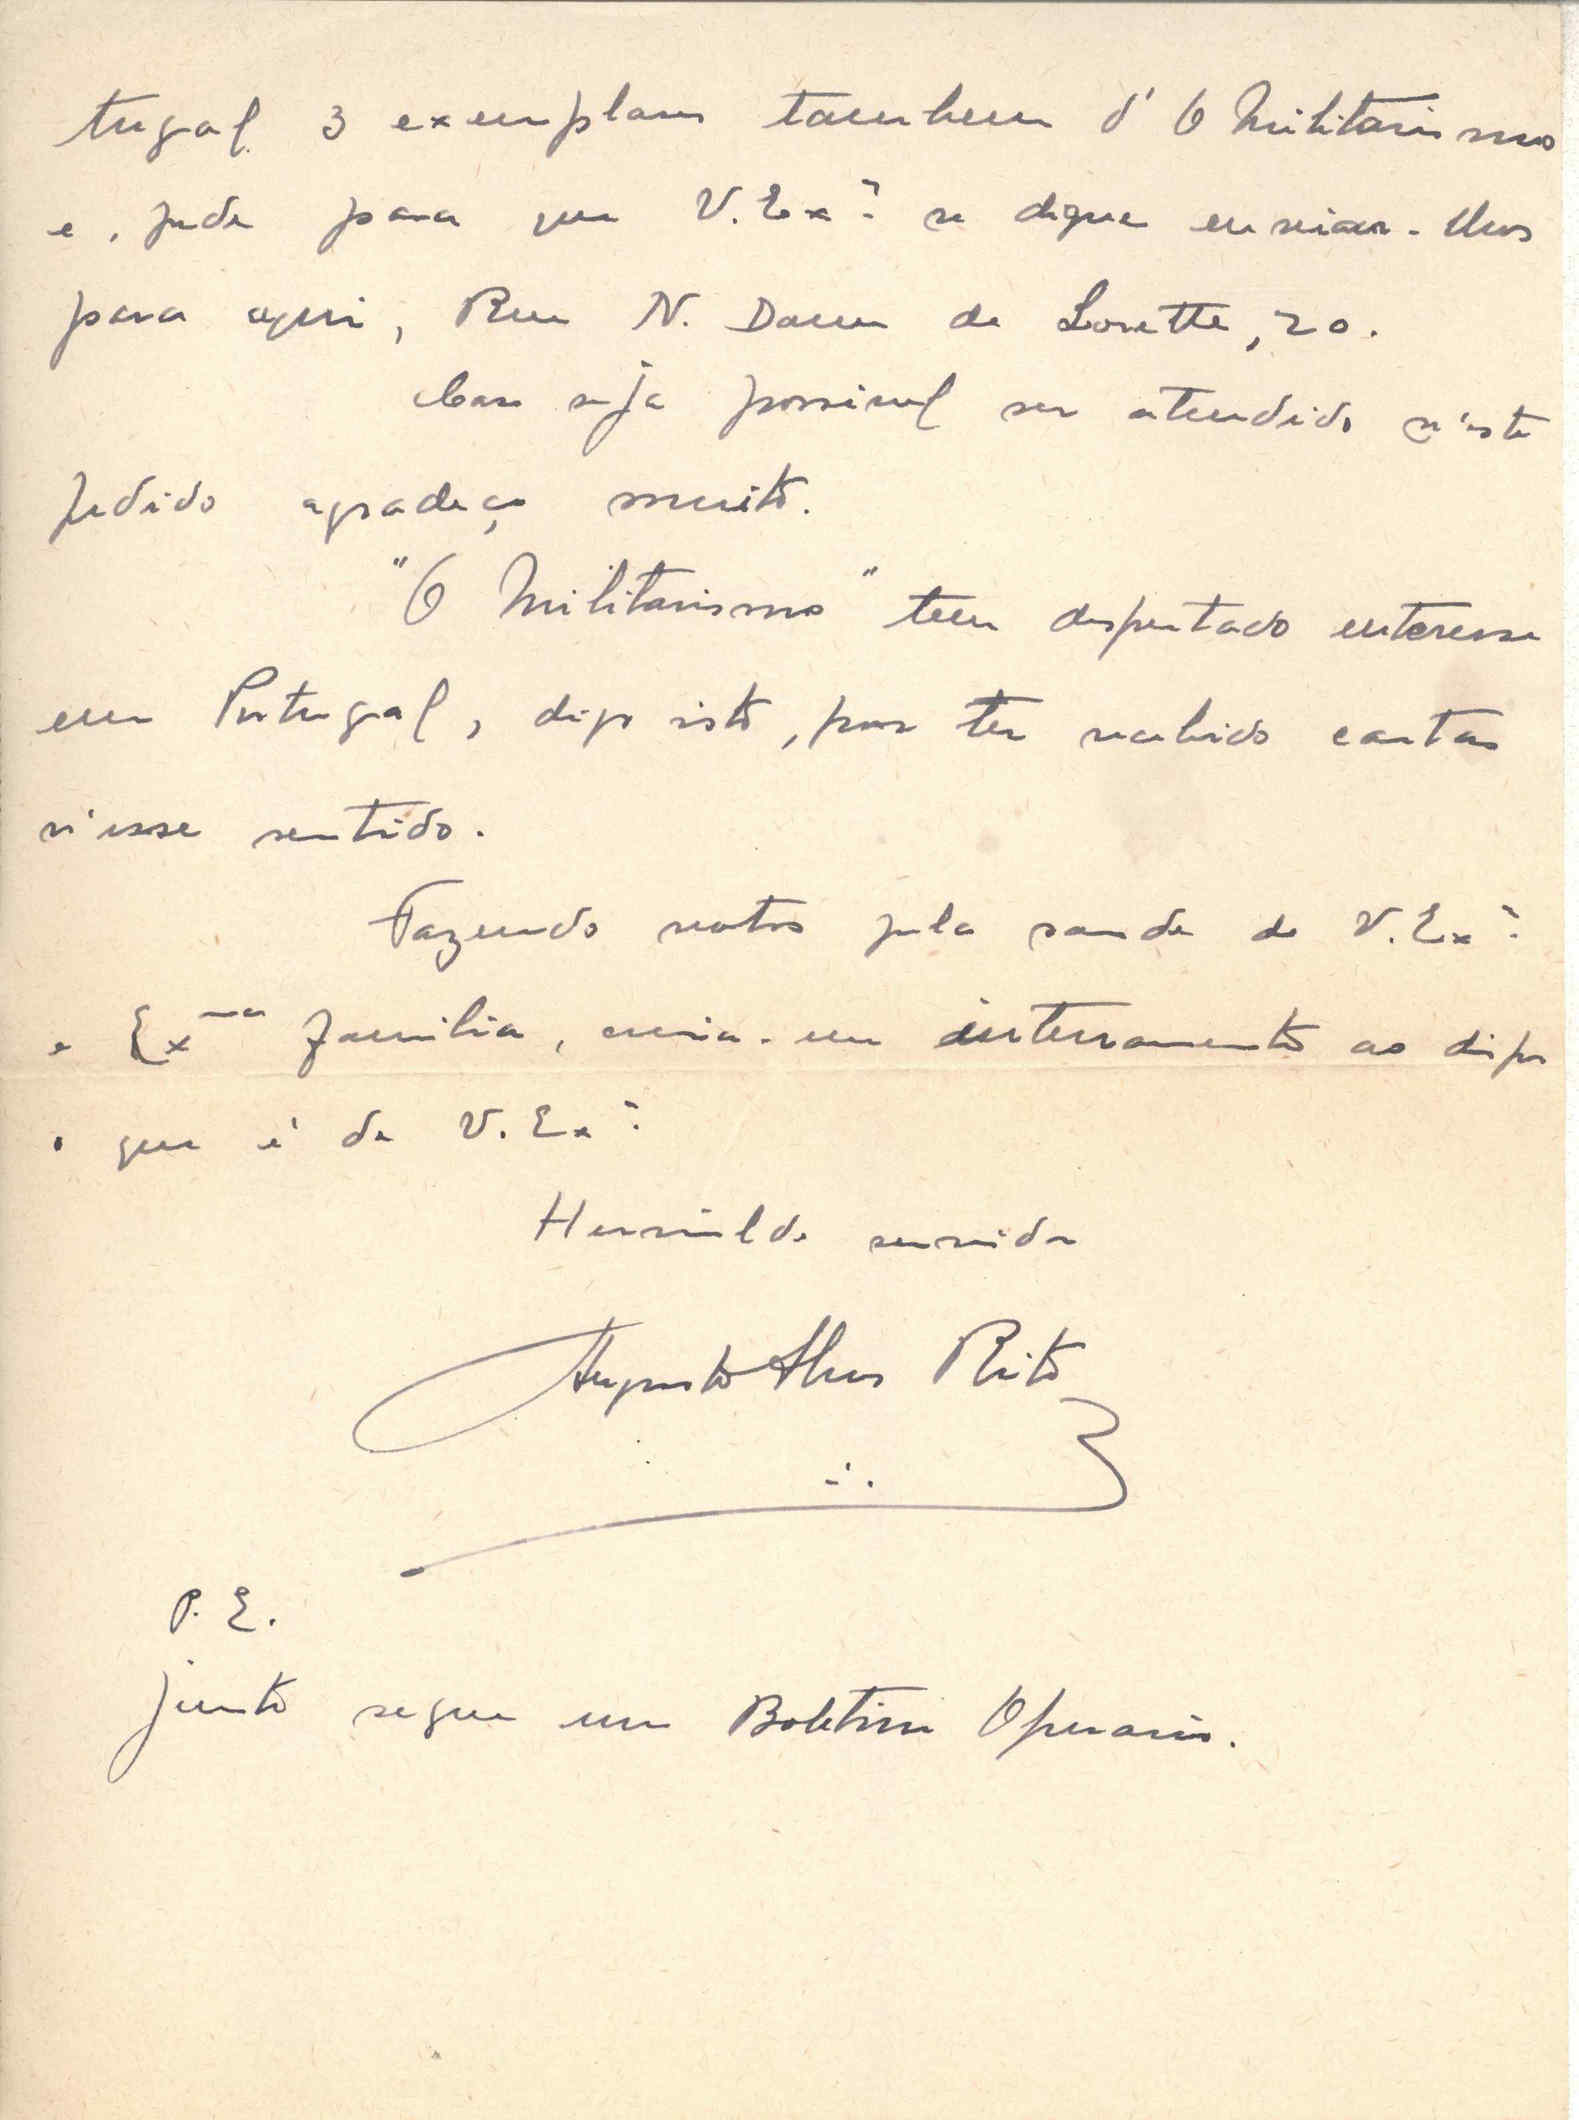 tugal 3 exemplares tambem d'O Militarismo
e, pede para que V. Exª se digne enviar-lhos
para aqui, Rue N. Dame de Lorette, 20.
Caso seja possivel ser atendido n'este
pedido agradeço muito.
"O Militarismo" tem despertado interesse
em Portugal, digo isto, por ter recebido cartas
n'esse sentido.
Fazendo votos pela saude de V. Exª
e Exma familia, creia-me inteiramente ao dispor
o que é de V. Exª
Humilde servidor
Augusto Alves Rito
P. E.
Junto segue um Boletim Operario.